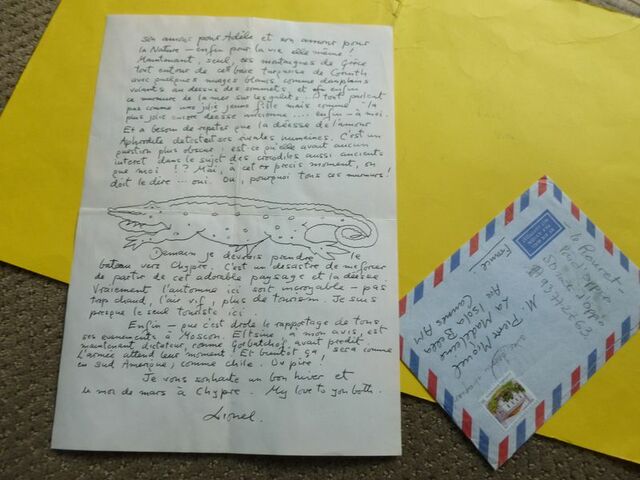 son amour pour Adèle et son amour pour
la Nature – enfin pour la vie elle même!
Maintenant, seul, ces montagnes de Grèce
tout entour de cet baie turquoise de Corinth
avec quelques nuages blancs comme
volants au dessus des sommets, et enfin
ce murmure de la mer sur les galets ... tout parlent
pas comme une jolie jeune fille mais comme la
plus jolie encore déesse ancienne .... enfin – à moi.
Et a besoin de repeter que la déesse de l'amour
Aphrodite detestait ses rivales humaines. C'est un
question plus obscur: est ce qu'elle avait aucun
interet dans le sujet des crocodiles aussi ancients
que moi!? Mai, à cet precis moment, on
doit le dire ... oui. Ou, pourquoi tous ces murmurs!
Demain je devrais prendre le
bateau vers Chypre. C'est un desastre de me forcer
de partir de cet adorable paysage et la déesse.
Vraiment l'automne ici soit incroyable – pas
trop chaud, l'air vif, plus de tourism. Je suis
presque le seul touriste ici.
Enfin – que c'est drole le rapportage de tous
ses evenements à Moscou. Eltsine, a mon avis, est
maintenant dictateur, comme Gorbatchof avait predit.
L'armée attend leur moment! Et bientôt ça sera comme
en sud Amerique, comme Chile. Ou pire!
Je vous souhaite un bon hiver et
le moi de mars à Chypre. My love to you both.
Lionel.
PAR AVION
France
M. Pierre Mignel
La Madeleine
Isola Bella
Cannes AM
le Rouret